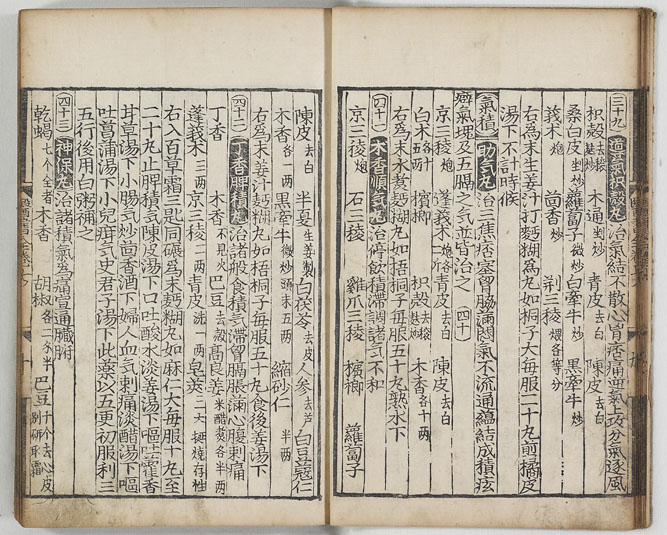 (三十九) 過氣枳殼丸 治氣結不散心胷痞痛逆氣上攻分氣逐風
枳殼去穣 木通剉炒 青皮去白 陳皮去白
桑白皮剉炒 蘿蔔子微炒 白牽牛炒 黑牽牛炒
莪术炮 茴香炒 荆三稜煨各等分
右為末生姜汁打麪糊為丸如桐子大每服二十丸煎橘皮
湯下不計時候
(氣積) 助气丸 治三焦痞塞胷膈滿悶氣不流通蘊結成積痃
癖氣塊及五膈之气並皆治之 (四十)
京三稜炮 蓬莪术炮各 青皮去白 陳皮去白
白术 檳榔 枳殼去穣麩炒 木香各十兩
右為末水煑麪糊丸如梧桐子每服五十丸熟水下
(四十一) 木香順氣丸 治停飲積滯調諸气不和
京三稜炮 石三稜 雞爪三稜 檳榔 蘿蔔子
陳皮去白 半夏生姜製 白茯苓去皮 人参去芦 白豆蔻仁
木香各一兩 黑牽牛微炒頭末五兩 縮砂仁半兩
右為末姜汁麪糊丸如梧桐子每服五十丸食後姜湯下
(四十二) 丁香脾積丸 治諸般食積气滯胷膈脹滿心腹刺痛
丁香 木香不見火 巴豆去殼 高良姜米醋煑各半兩
蓬莪术三兩 京三稜二兩 青皮洗一兩 皂莢二大挺燒存性
右入百草霜三匙同碾為末麪糊丸如麻仁大每服十丸至
二十丸止脾積气陳皮湯下口吐酸水淡姜湯下嘔吐藿香
甘草湯下小腸气炒茴香酒下婦人血气刺痛淡醋湯下嘔
吐菖蒲湯下小兒疳气史君子湯下此藥以五更初服利三
五行後用白粥補之
(四十三) 神保丸 治諸積氣為痛宣通臟腑
乾蝎七个全者 木香 胡椒各二錢半 巴豆十个去心皮別研取霜